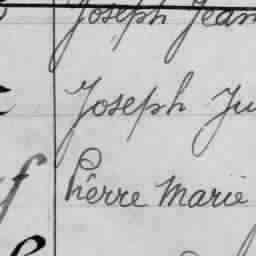 Joseph Jean
Joseph Ju
Pierre Marie